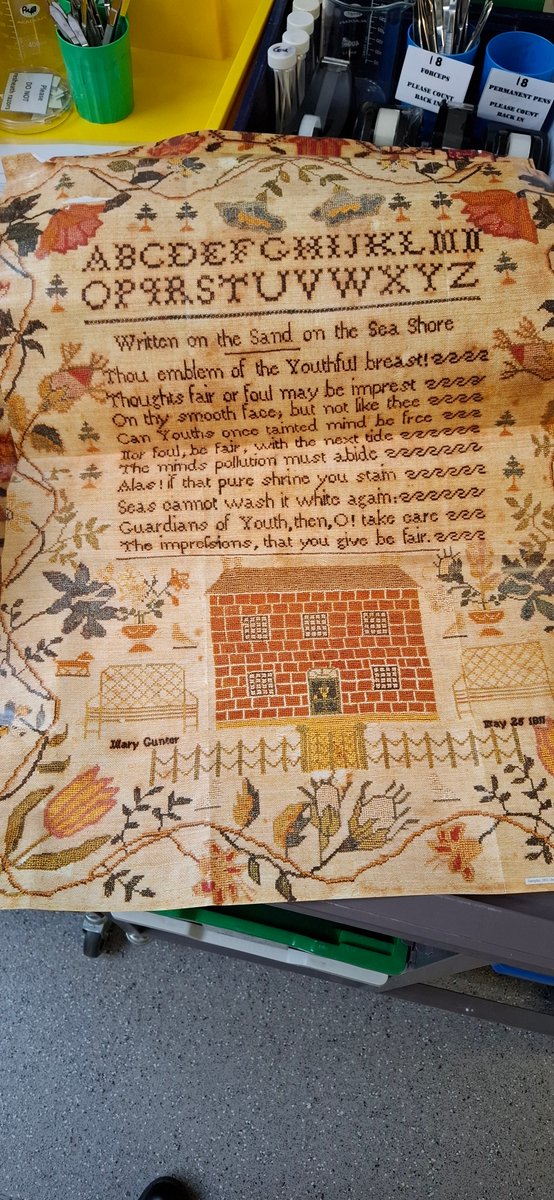 Please
DO NOT
18
FORCEPS
PLEASE COUNT
BACK IN
18
PERMANENT PENS
PLEASE COUNT
BACK IN
ABCDEFGHIJKLMN
OPQRSTUVWXYZ
Written on the Sand on the Sea Shore
Thou emblem of the Youthful breast!
Thoughts fair or foul may be imprest
On thy smooth face, but not like thee
Can Youths once tainted mind be free
Nor foul, be fair, with the next tide
The minds pollution must abide
Alas! if that pure shrine you stain
Seas cannot wash it white again:
Guardians of Youth, then, O! take care
The impreſsions, that you give be fair.
Mary Gunter
May 28 1811